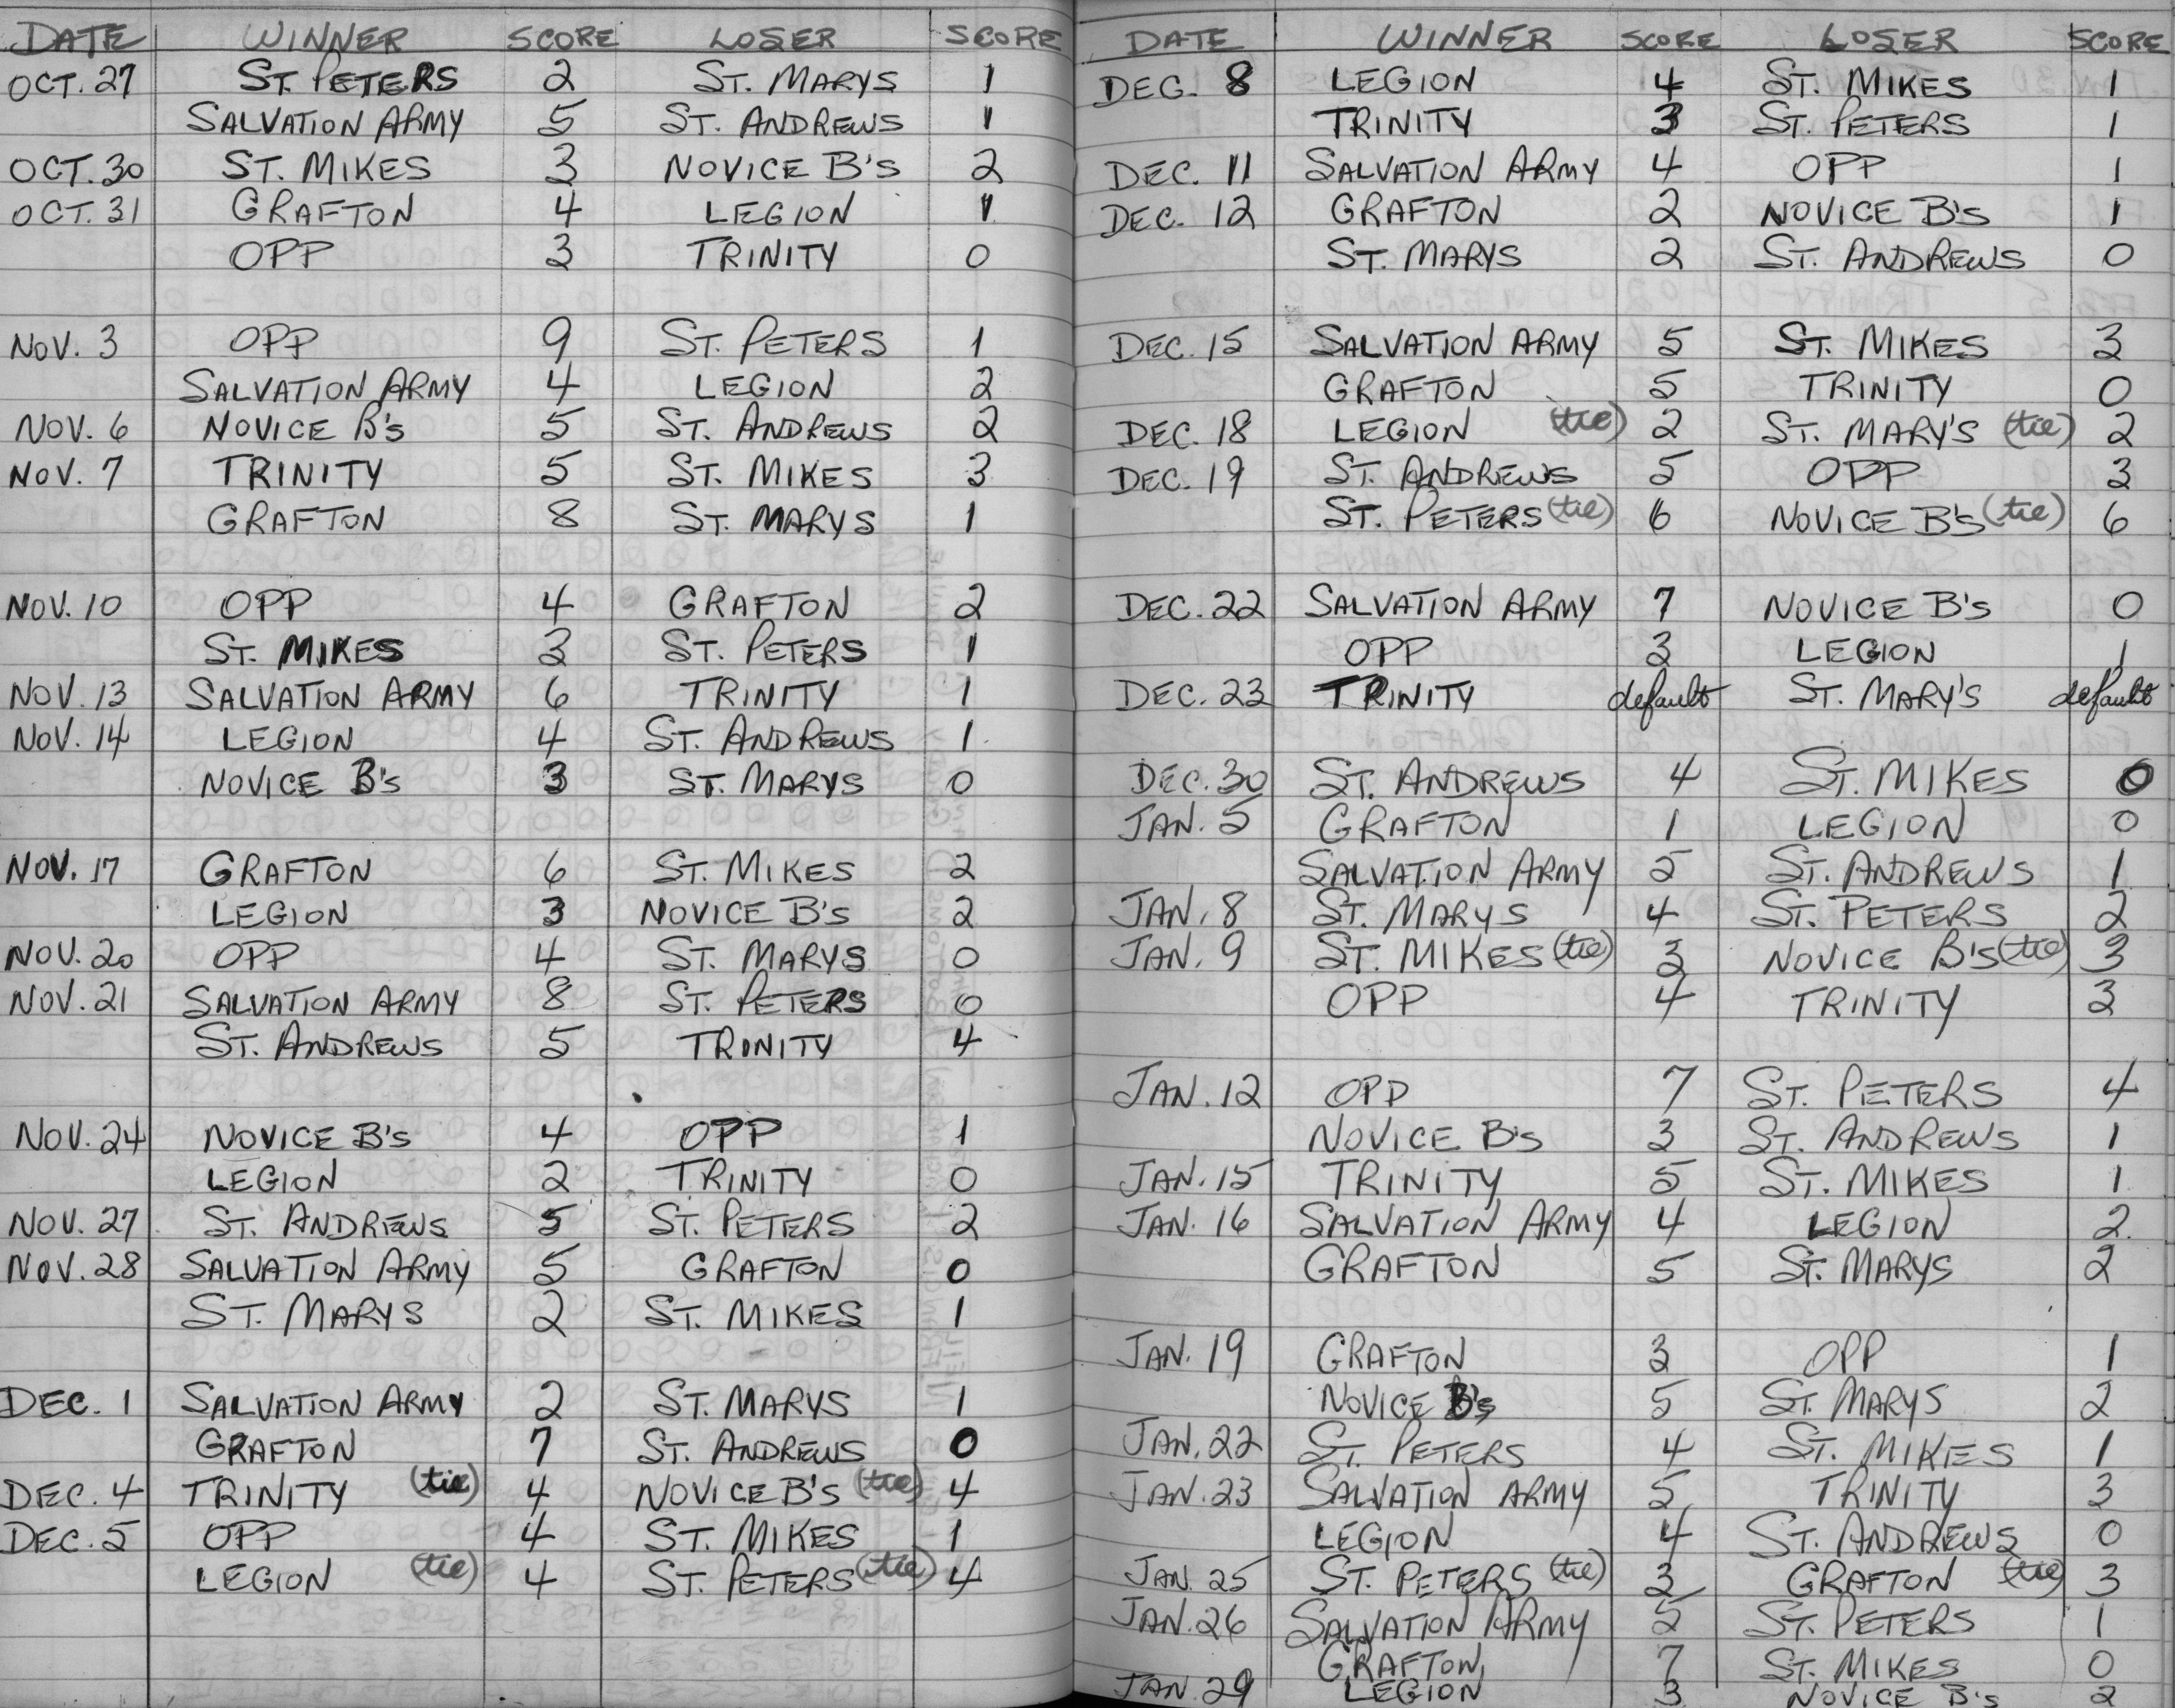 DATE WINNER SCORE LOSER SCORE
OCT. 27 ST. PETERS 2 ST. MARYS 1
SALVATION ARMY 5 ST. ANDREWS 1
OCT. 30 ST. MIKES 3 NOVICE B's 2
OCT. 31 GRAFTON 4 LEGION 1
OPP 3 TRINITY 0
NOV. 3 OPP 9 ST. PETERS 1
SALVATION ARMY 4 LEGION 2
NOV. 6 NOVICE B's 5 ST. ANDREWS 2
NOV. 7 TRINITY 5 ST. MIKES 3
GRAFTON 8 ST. MARYS 1
NOV. 10 OPP 4 GRAFTON 2
ST. MIKES 3 ST. PETERS 1
NOV. 13 SALVATION ARMY 6 TRINITY 1
NOV. 14 LEGION 4 ST. ANDREWS 1
NOVICE B's 3 ST. MARYS 0
NOV. 17 GRAFTON 6 ST. MIKES 2
LEGION 3 NOVICE B's 2
NOV. 20 OPP 4 ST. MARYS 0
NOV. 21 SALVATION ARMY 8 ST. PETERS 0
ST. ANDREWS 5 TRINITY 4
NOV. 24 NOVICE B's 4 OPP 1
LEGION 2 TRINITY 0
NOV. 27 ST. ANDREWS 5 ST. PETERS 2
NOV. 28 SALVATION ARMY 5 GRAFTON 0
ST. MARYS 2 ST. MIKES 1
DEC. 1 SALVATION ARMY 2 ST. MARYS 1
GRAFTON 7 ST. ANDREWS 0
DEC. 4 TRINITY (tie) 4 NOVICE B's (tie) 4
DEC. 5 OPP 4 ST. MIKES 1
LEGION (tie) 4 ST. PETERS (tie) 4
DATE WINNER SCORE LOSER SCORE
DEC. 8 LEGION 4 ST. MIKES 1
TRINITY 3 ST. PETERS 1
DEC. 11 SALVATION ARMY 4 OPP 1
DEC. 12 GRAFTON 2 NOVICE B's 1
ST. MARYS 2 ST. ANDREWS 0
DEC. 15 SALVATION ARMY 5 ST. MIKES 3
GRAFTON 5 TRINITY 0
DEC. 18 LEGION (tie) 2 ST. MARY'S (tie) 2
DEC. 19 ST. ANDREWS 5 OPP 3
ST. PETERS (tie) 6 NOVICE B's (tie) 6
DEC. 22 SALVATION ARMY 7 NOVICE B's 0
OPP 3 LEGION 1
DEC. 23 TRINITY default ST. MARY'S default
DEC. 30 ST. ANDREWS 4 ST. MIKES 0
JAN. 5 GRAFTON 1 LEGION 0
SALVATION ARMY 5 ST. ANDREWS 1
JAN. 8 ST. MARYS 4 ST. PETERS 2
JAN. 9 ST. MIKES (tie) 3 NOVICE B's (tie) 3
OPP 4 TRINITY 3
JAN. 12 OPP 7 ST. PETERS 4
NOVICE B's 3 ST. ANDREWS 1
JAN. 15 TRINITY 5 ST. MIKES 1
JAN. 16 SALVATION ARMY 4 LEGION 2
GRAFTON 5 ST. MARYS 2
JAN. 19 GRAFTON 3 OPP 1
NOVICE B's 5 ST. MARYS 2
JAN. 22 ST. PETERS 4 ST. MIKES 1
JAN. 23 SALVATION ARMY 5 TRINITY 3
LEGION 4 ST. ANDREWS 0
JAN. 25 ST. PETERS (tie) 3 GRAFTON (tie) 3
JAN. 26 SALVATION ARMY 5 ST. PETERS 1
GRAFTON 7 ST. MIKES 0
JAN. 29 LEGION 3 NOVICE B's 2